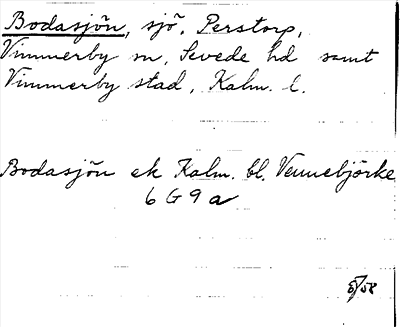 Bodasjön, sjö, Perstorp,
Vimmerby sn, Sevede hd samt
Vimmerby stad, Kalm. l.
Bodasjön ek Kalm. bl. Vennebjörke
6 G 9 a
/58